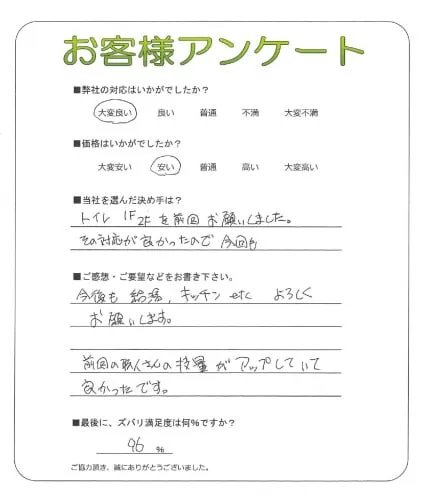 お客様アンケート
■弊社の対応はいかがでしたか?
大変良い 良い 普通 不満 大変不満
■価格はいかがでしたか?
大変安い 安い 普通 高い 大変高い
■当社を選んだ決め手は?
トイレ 1F 2F を前回お願いしました。
その対応が良かったので今回も
■ご感想・ご要望などをお書き下さい。
今後も給湯,キッチン etc よろしく
お願いします。
前回の職人さんの技量がアップしていて
良かったです。
■最後に、ズバリ満足度は何%ですか?
96 %
ご協力頂き、誠にありがとうございました。